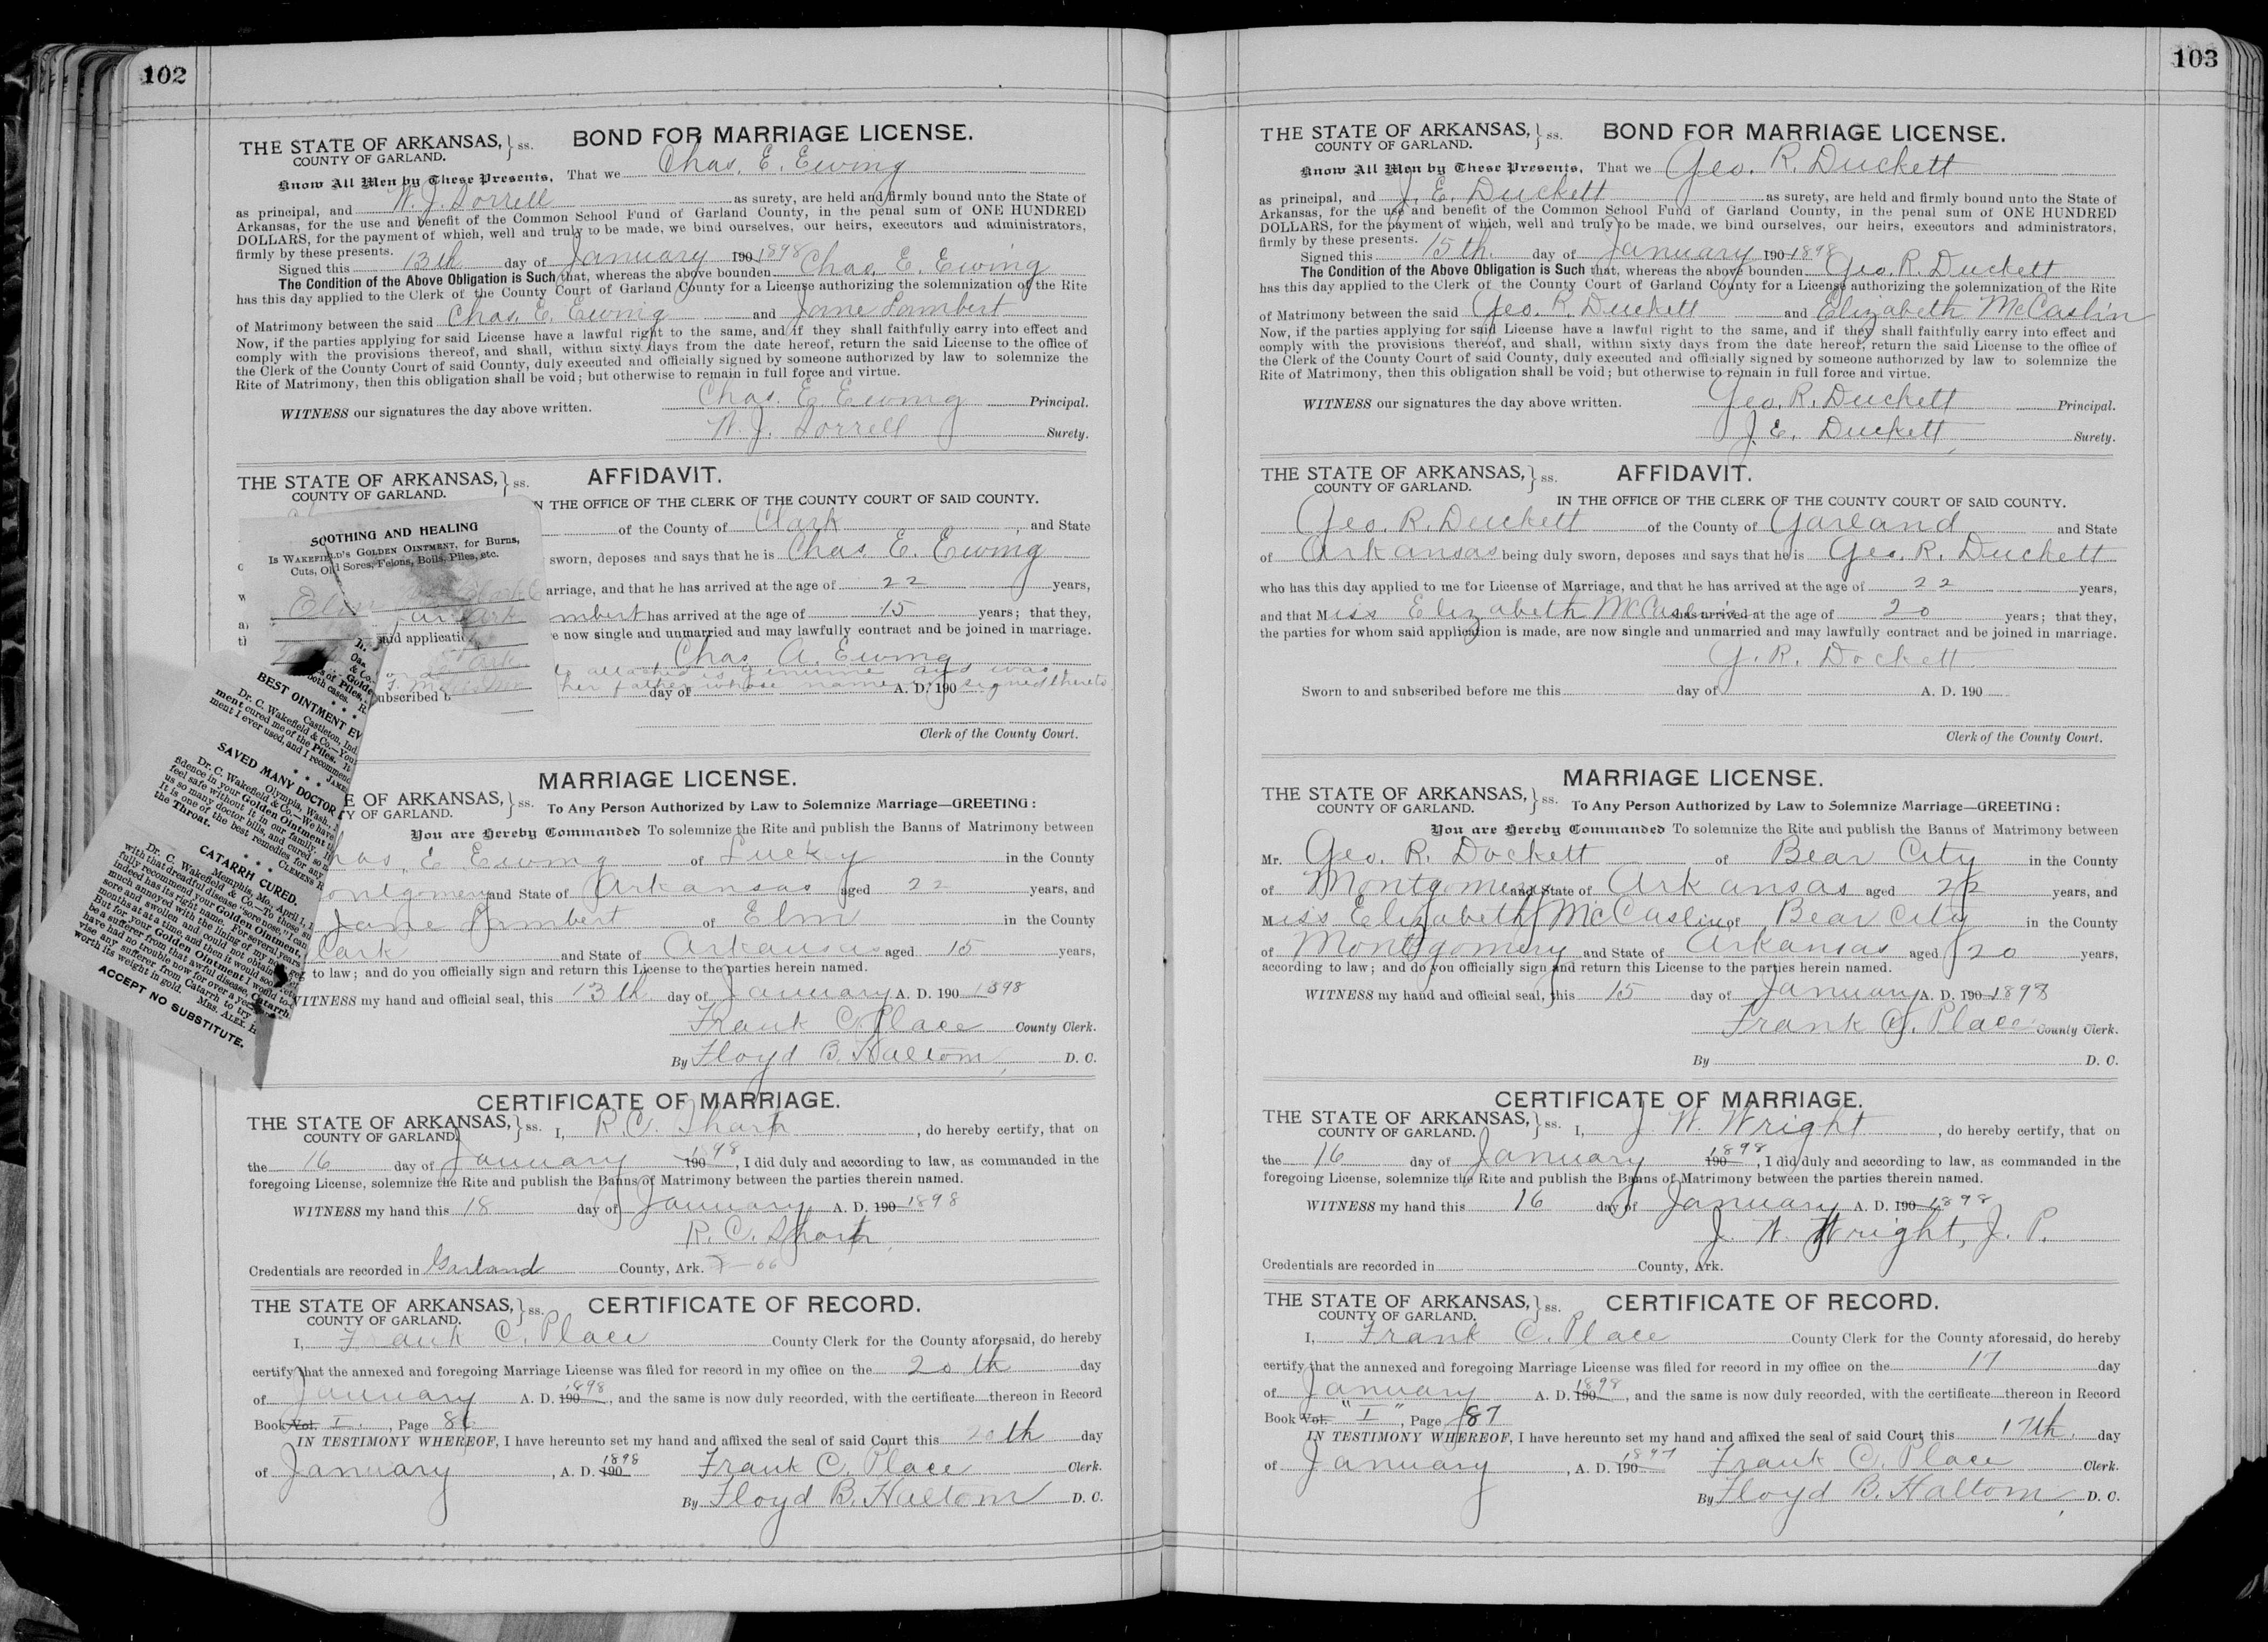 102
THE STATE OF ARKANSAS, } ss. BOND FOR MARRIAGE LICENSE.
COUNTY OF GARLAND.
Know All Men by These Presents, That we Chas. E. Ewing
as principal, and W. J. Sorrell as surety, are held and firmly bound unto the State of
Arkansas, for the use and benefit of the Common School Fund of Garland County, in the penal sum of ONE HUNDRED
DOLLARS, for the payment of which, well and truly to be made, we bind ourselves, our heirs, executors and administrators,
firmly by these presents.
Signed this 13th day of January 190 1898
The Condition of the Above Obligation is Such that, whereas the above bounden Chas. E. Ewing
has this day applied to the Clerk of the County Court of Garland County for a License authorizing the solemnization of the Rite
of Matrimony between the said Chas. E. Ewing and Jane Lambert
Now, if the parties applying for said License have a lawful right to the same, and if they shall faithfully carry into effect and
comply with the provisions thereof, and shall, within sixty days from the date hereof, return the said License to the office of
the Clerk of the County Court of said County, duly executed and officially signed by someone authorized by law to solemnize the
Rite of Matrimony, then this obligation shall be void; but otherwise to remain in full force and virtue.
WITNESS our signatures the day above written. Chas. E. Ewing Principal.
W. J. Sorrell Surety.
THE STATE OF ARKANSAS, } ss. AFFIDAVIT.
COUNTY OF GARLAND.
N THE OFFICE OF THE CLERK OF THE COUNTY COURT OF SAID COUNTY.
of the County of Clark and State
sworn, deposes and says that he is Chas. E. Ewing
arriage, and that he has arrived at the age of 22 years,
mbert has arrived at the age of 15 years; that they,
e now single and unmarried and may lawfully contract and be joined in marriage.
Chas. A. Ewing
attached is genuine and was
ubscribed b her father whose name is signed thereto day of A. D. 190
Clerk of the County Court.
SOOTHING AND HEALING
Is WAKEFIELD'S GOLDEN OINTMENT, for Burns,
Cuts, Old Sores, Felons, Boils, Piles, etc.
aid applicati
BEST OINTMENT EV
Castleton, Ind.
Dr. C. Wakefield & Co.—Your
ment cured me of the Piles. It
ment I ever used, and I recommend
JAMES
SAVED MANY DOCTOR
Olympia, Wash.,
Dr. C. Wakefield & Co.—We have
fidence in your Golden Ointment th
feel safe without it in our family. It
us so many doctor bills, and cured so m
It is one of the best remedies for any
the Throat.
CLEMENS R
CATARRH CURED.
Memphis, Mo., April 1, 1
Dr. C. Wakefield & Co.—To those su
with that dreadful disease "sore nose," I can
fully recommend your Golden Ointment,
indeed has its right name. For several years,
much annoyed with the lining of my nose get
sore and swollen and could not obtain
months at a time and then it would soon retu
But for your Golden Ointment I would to-
be a sufferer from that awful disease, Catarrh
have had no trouble now for over a year
vise any sufferer from Catarrh to try
worth its weight in gold. Mrs. ALEX. H
ACCEPT NO SUBSTITUTE.
MARRIAGE LICENSE.
E OF ARKANSAS, } ss. To Any Person Authorized by Law to Solemnize Marriage—GREETING:
TY OF GARLAND.
You are Hereby Commanded To solemnize the Rite and publish the Banns of Matrimony between
has. E Ewing of Lucky in the County
ontgomery and State of Arkansas aged 22 years, and
Jane Lambert of Elm in the County
Clark and State of Arkansas aged 15 years,
to law; and do you officially sign and return this License to the parties herein named.
WITNESS my hand and official seal, this 13th day of January A. D. 190 1898
Frank C. Place County Clerk.
By Floyd B. Haltom D. C.
CERTIFICATE OF MARRIAGE.
THE STATE OF ARKANSAS, } ss. I, R. C. Sharp, do hereby certify, that on
COUNTY OF GARLAND.
the 16 day of January 190 1898, I did duly and according to law, as commanded in the
foregoing License, solemnize the Rite and publish the Banns of Matrimony between the parties therein named.
WITNESS my hand this 18 day of January A. D. 190 1898
R. C. Sharp
Credentials are recorded in Garland County, Ark.
THE STATE OF ARKANSAS, } ss. CERTIFICATE OF RECORD.
COUNTY OF GARLAND.
I, Frank C. Place County Clerk for the County aforesaid, do hereby
certify that the annexed and foregoing Marriage License was filed for record in my office on the 20th day
of January A. D. 190 1898, and the same is now duly recorded, with the certificate thereon in Record
Book Vol. I, Page 86
IN TESTIMONY WHEREOF, I have hereunto set my hand and affixed the seal of said Court this 20th day
of January, A. D. 190 1898 Frank C. Place Clerk.
By Floyd B. Haltom D. C.
103
THE STATE OF ARKANSAS, } ss. BOND FOR MARRIAGE LICENSE.
COUNTY OF GARLAND.
Know All Men by These Presents, That we Geo. R. Duckett
as principal, and J. E. Duckett as surety, are held and firmly bound unto the State of
Arkansas, for the use and benefit of the Common School Fund of Garland County, in the penal sum of ONE HUNDRED
DOLLARS, for the payment of which, well and truly to be made, we bind ourselves, our heirs, executors and administrators,
firmly by these presents.
Signed this 15th. day of January 190 1898
The Condition of the Above Obligation is Such that, whereas the above bounden Geo. R. Duckett
has this day applied to the Clerk of the County Court of Garland County for a License authorizing the solemnization of the Rite
of Matrimony between the said Geo. R. Duckett and Elizabeth McCaslin
Now, if the parties applying for said License have a lawful right to the same, and if they shall faithfully carry into effect and
comply with the provisions thereof, and shall, within sixty days from the date hereof, return the said License to the office of
the Clerk of the County Court of said County, duly executed and officially signed by someone authorized by law to solemnize the
Rite of Matrimony, then this obligation shall be void; but otherwise to remain in full force and virtue.
WITNESS our signatures the day above written. Geo. R. Duckett Principal.
J. E. Duckett Surety.
THE STATE OF ARKANSAS, } ss. AFFIDAVIT.
COUNTY OF GARLAND.
IN THE OFFICE OF THE CLERK OF THE COUNTY COURT OF SAID COUNTY.
Geo. R. Duckett of the County of Garland and State
of Arkansas being duly sworn, deposes and says that he is Geo. R. Duckett
who has this day applied to me for License of Marriage, and that he has arrived at the age of 22 years,
and that Miss Elizabeth McCaslin has arrived at the age of 20 years; that they,
the parties for whom said application is made, are now single and unmarried and may lawfully contract and be joined in marriage.
G. R. Dockett
Sworn to and subscribed before me this day of A. D. 190
Clerk of the County Court.
MARRIAGE LICENSE.
THE STATE OF ARKANSAS, } ss. To Any Person Authorized by Law to Solemnize Marriage—GREETING:
COUNTY OF GARLAND.
You are Hereby Commanded To solemnize the Rite and publish the Banns of Matrimony between
Mr. Geo. R. Dockett of Bear City in the County
of Montgomery and State of Arkansas aged 22 years, and
Miss Elizabeth McCaslin of Bear City in the County
of Montgomery and State of Arkansas aged 20 years,
according to law; and do you officially sign and return this License to the parties herein named.
WITNESS my hand and official seal, this 15 day of January A. D. 190 1898
Frank C. Place County Clerk.
By D. C.
CERTIFICATE OF MARRIAGE.
THE STATE OF ARKANSAS, } ss. I, J. W. Wright, do hereby certify, that on
COUNTY OF GARLAND.
the 16 day of January 190 1898, I did duly and according to law, as commanded in the
foregoing License, solemnize the Rite and publish the Banns of Matrimony between the parties therein named.
WITNESS my hand this 16 day of January A. D. 190 1898
J. W. Wright, J. P.
Credentials are recorded in County, Ark.
THE STATE OF ARKANSAS, } ss. CERTIFICATE OF RECORD.
COUNTY OF GARLAND.
I, Frank C. Place County Clerk for the County aforesaid, do hereby
certify that the annexed and foregoing Marriage License was filed for record in my office on the 17 day
of January A. D. 190 1898, and the same is now duly recorded, with the certificate thereon in Record
Book Vol. "I", Page 87
IN TESTIMONY WHEREOF, I have hereunto set my hand and affixed the seal of said Court this 17th. day
of January, A. D. 190 1897 Frank C. Place Clerk.
By Floyd B. Haltom, D. C.